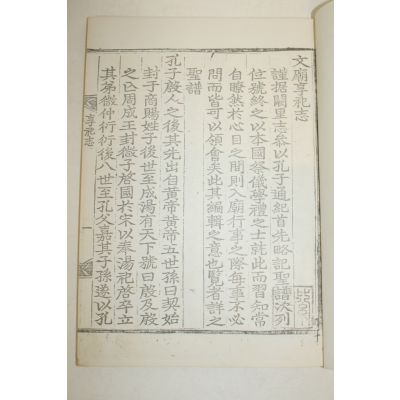 文廟享祀志
謹據闕里志參以孔子通紀首先略記聖譜次列
位號終之以本國祭儀學禮之士就此而習知常
自瞭然於心目之間則入廟行事之際每事不必
問而皆可以領會矣此其編輯之意也覽者詳之
聖譜
孔子殷人之後其先出自黃帝黃帝五世孫曰契始
封于商賜姓子後世至成湯有天下號曰殷及殷
之亡周成王封微子啓國於宋以奉湯祀啓卒立
其弟微仲衍衍後八世至孔父嘉其子孫遂以孔
享祀志
一